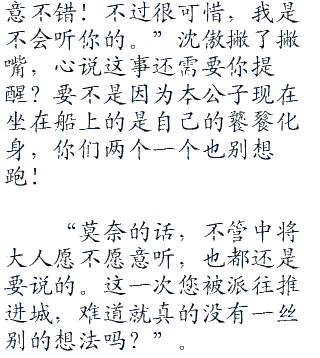 意不错！不过很可惜，我是
不会听你的。”沈傲撇了撇
嘴，心说这事还需要你提
醒？要不是因为本公子现在
坐在船上的是自己的饕餮化
身，你们两个一个也别想
跑！
“莫奈的话，不管中将
大人愿不愿意听，也都还是
要说的。这一次您被派往推
进城，难道就真的没有一丝
别的想法吗？”。